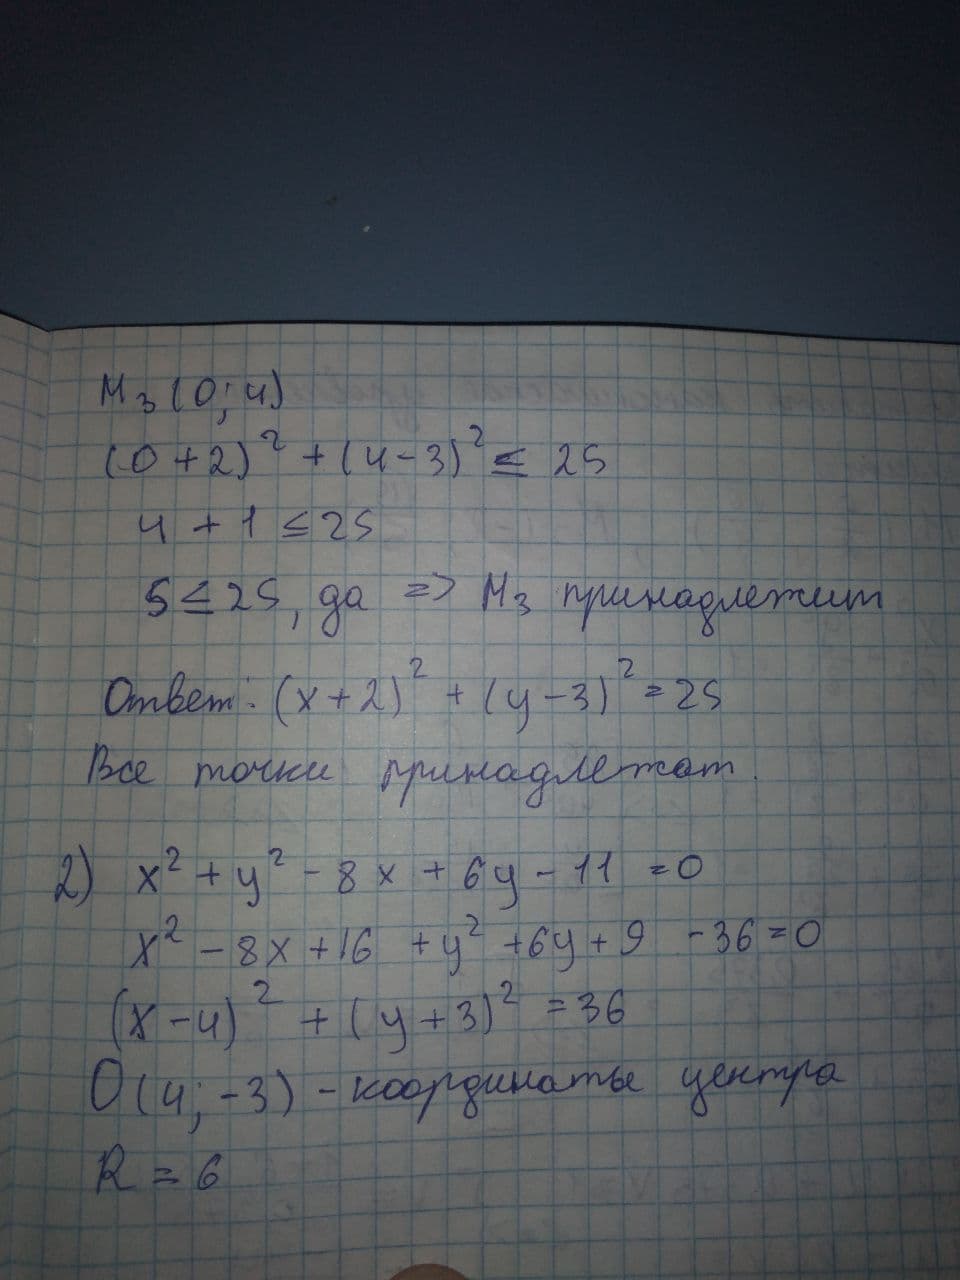 M₃(0; 4)
(0+2)² + (4-3)² ≤ 25
4 + 1 ≤ 25
5 ≤ 25, да => M₃ принадлежит
Ответ: (x+2)² + (y-3)² = 25
Все точки принадлежат.
2) x² + y² - 8x + 6y - 11 = 0
x² - 8x + 16 + y² + 6y + 9 - 36 = 0
(x-4)² + (y+3)² = 36
O(4; -3) - координаты центра
R = 6